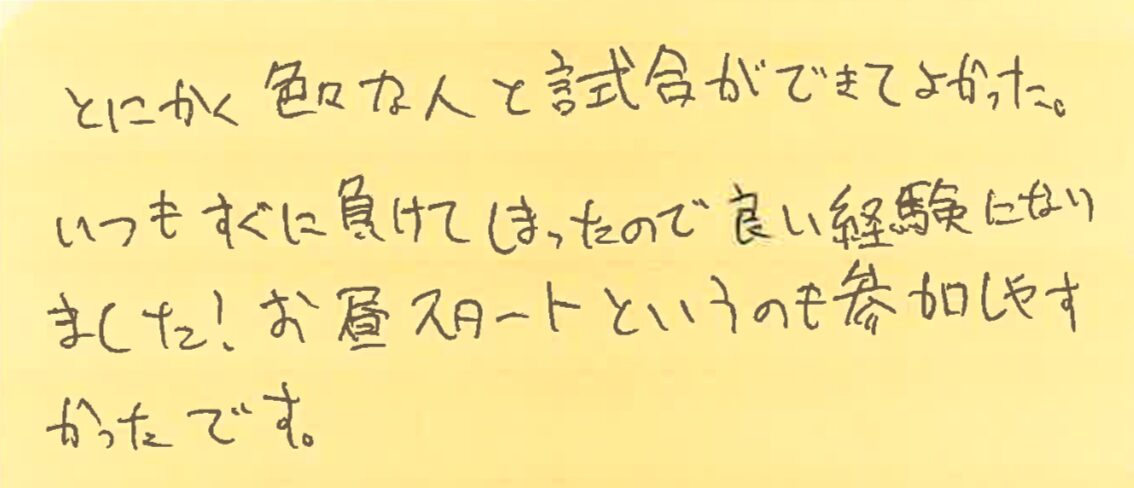 とにかく色々な人と試合ができてよかった。
いつもすぐに負けてしまったので良い経験になり
ました！お昼スタートというのも参加しやす
かったです。